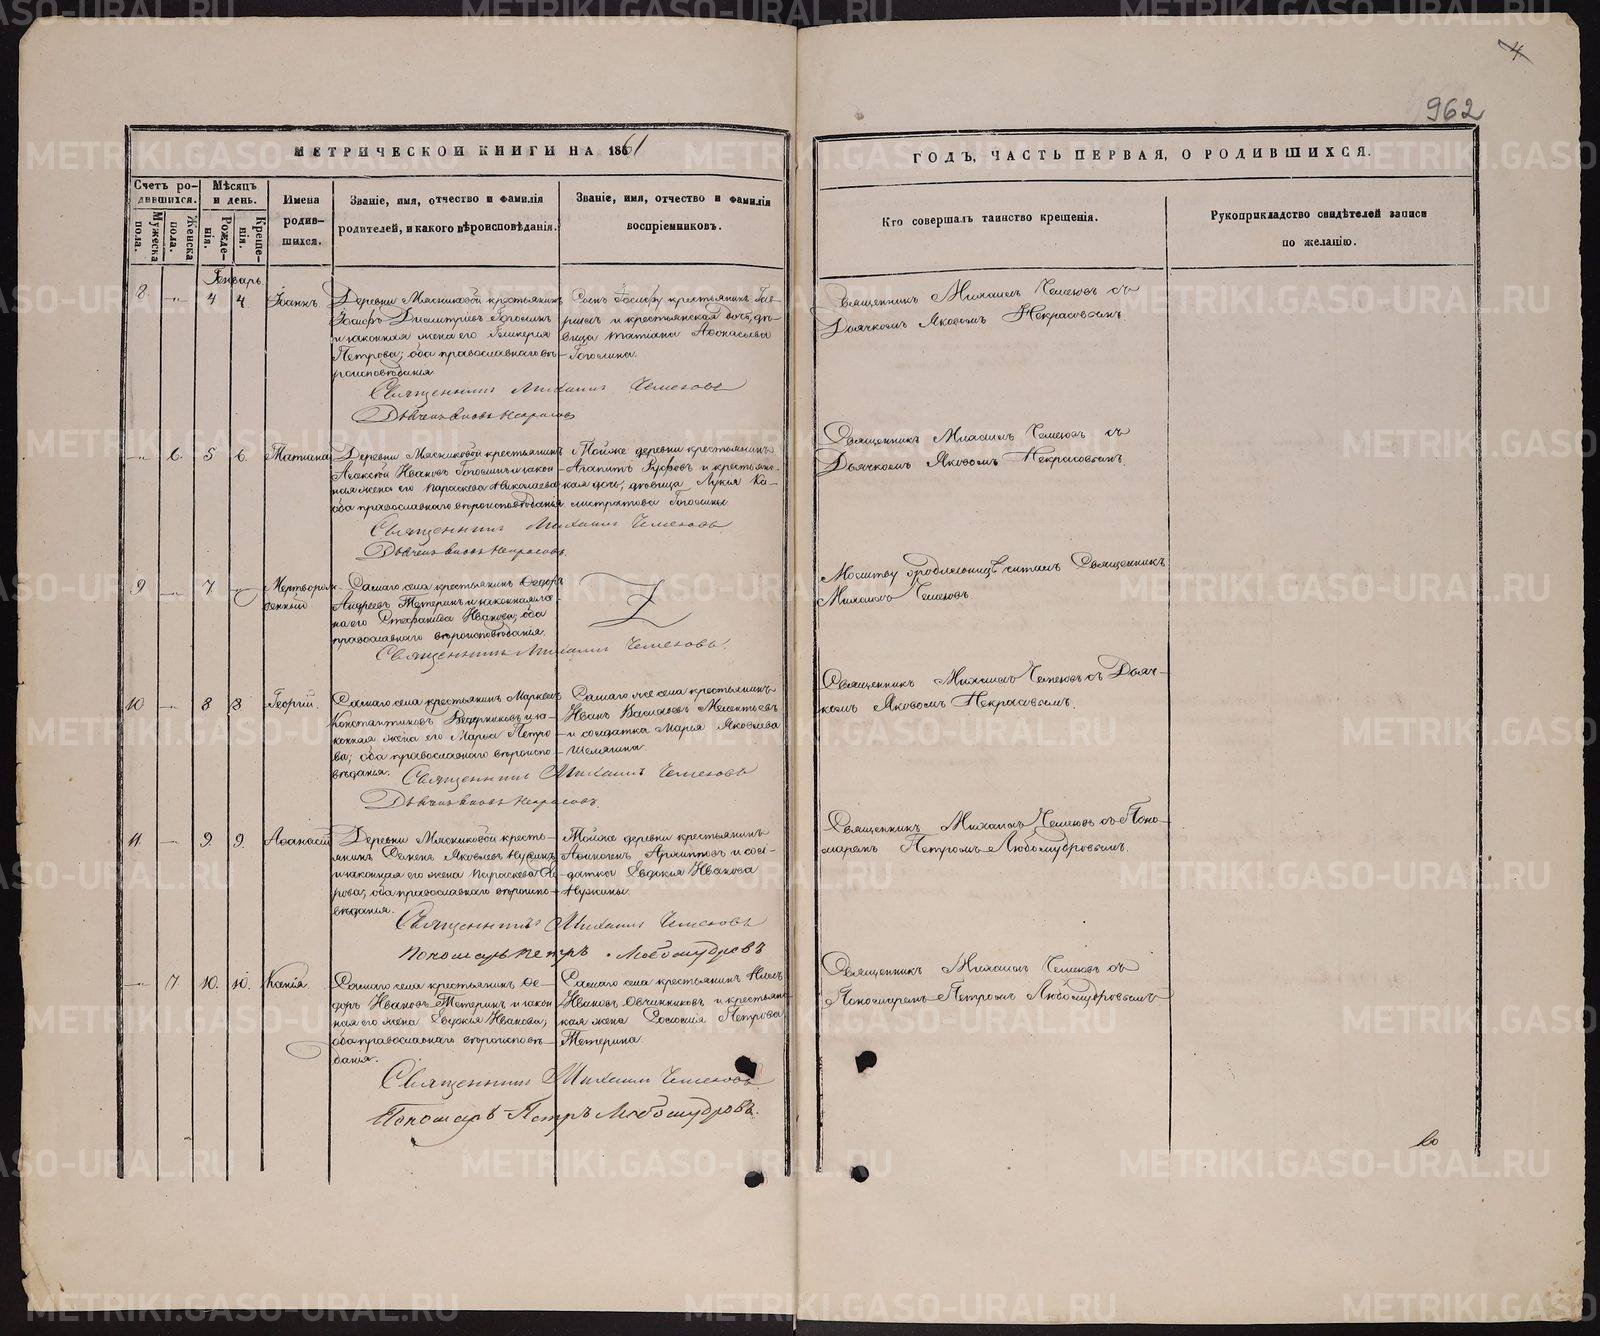 4
962
МЕТРИЧЕСКОЙ КНИГИ НА 1861
ГОДЪ, ЧАСТЬ ПЕРВАЯ, О РОДИВШИХСЯ.
Счетъ родившихся.
Мужеска пола.
Женска пола.
Мѣсяцъ и день.
Рожденія.
Крещенія.
Имена родившихся.
Званіе, имя, отчество и фамилія
родителей, и какого вѣроисповѣданія.
Званіе, имя, отчество и фамилія
воспріемниковъ.
Кто совершалъ таинство крещенія.
Рукоприкладство свидѣтелей записи
по желанію.
Генварь
8. 4 4 Іоаннъ
Деревни Мясниковой крестьянинъ
Іосифъ Димитріевъ
и законная жена его Гликерія
Петрова; оба православнаго вѣ-
роисповѣданія.
крестьянинъ
и крестьянская дочь, дѣ-
вица Татіана Аѳонасьева
Священникъ Михаилъ Чемезовъ съ
Дьячкомъ Яковомъ Некрасовымъ.
Священникъ Михаилъ Чемезовъ
Дьячекъ Яковъ Некрасовъ
6. 5 6. Татіана
Деревни Мясниковой крестьянинъ
Алексѣй Ивановъ и закон-
ная жена его Параскева Николаева
оба православнаго вѣроисповѣданія
Тойже деревни крестьянинъ
Агапитъ и крестьянс-
кая дочь, дѣвица Лукія Ка-
листратова
Священникъ Михаилъ Чемезовъ съ
Дьячкомъ Яковомъ Некрасовымъ.
Священникъ Михаилъ Чемезовъ
Дьячекъ Яковъ Некрасовъ.
9 7 Мертворож-
денный
Самаго села крестьянинъ Ѳедоръ
Андреевъ Тетеринъ и законная же-
на его Стефанида Иванова; оба
православнаго вѣроисповѣданія.
Молитву родильницѣ читалъ Священникъ
Михаилъ Чемезовъ.
Священникъ Михаилъ Чемезовъ.
10 8 8 Георгій.
Самаго села крестьянинъ Маркелъ
Константиновъ и за-
конная жена его Марья Петро-
ва; оба православнаго вѣроиспо-
вѣданія.
Самаго же села крестьянинъ
Иванъ Васильевъ Мелентьевъ
и солдатка Марія Яковлева
Шемякина.
Священникъ Михаилъ Чемезовъ съ Дьяч-
комъ Яковомъ Некрасовымъ.
Священникъ Михаилъ Чемезовъ
Дьячекъ Яковъ Некрасовъ.
11. 9. 9. Аѳанасій
Деревни Мясниковой кресть-
янинъ Семенъ Яковлевъ
и законная его жена Параскева
оба православнаго вѣроиспо-
вѣданія.
Тойже деревни крестьянинъ
Архиповъ и сол-
датка Евдокія Иванова
Нужины.
Священникъ Михаилъ Чемезовъ съ Поно-
маремъ Петромъ Любомудровымъ.
Священникъ Михаилъ Чемезовъ
Пономарь Петръ Любомудровъ
7. 10. 10. Ксенія.
Самаго села крестьянинъ Ѳе-
доръ Ивановъ Тетеринъ и закон-
ная его жена Евдокія Иванова;
оба православнаго вѣроисповѣ-
данія.
Самаго села крестьянинъ
Ивановъ Овчинниковъ и крестьянс-
кая жена Ѳеодосія Петрова
Тетерина.
Священникъ Михаилъ Чемезовъ съ
Пономаремъ Петромъ Любомудровымъ
Священникъ Михаилъ Чемезовъ
Пономарь Петръ Любомудровъ.
METRIKI.GASO-URAL.RU